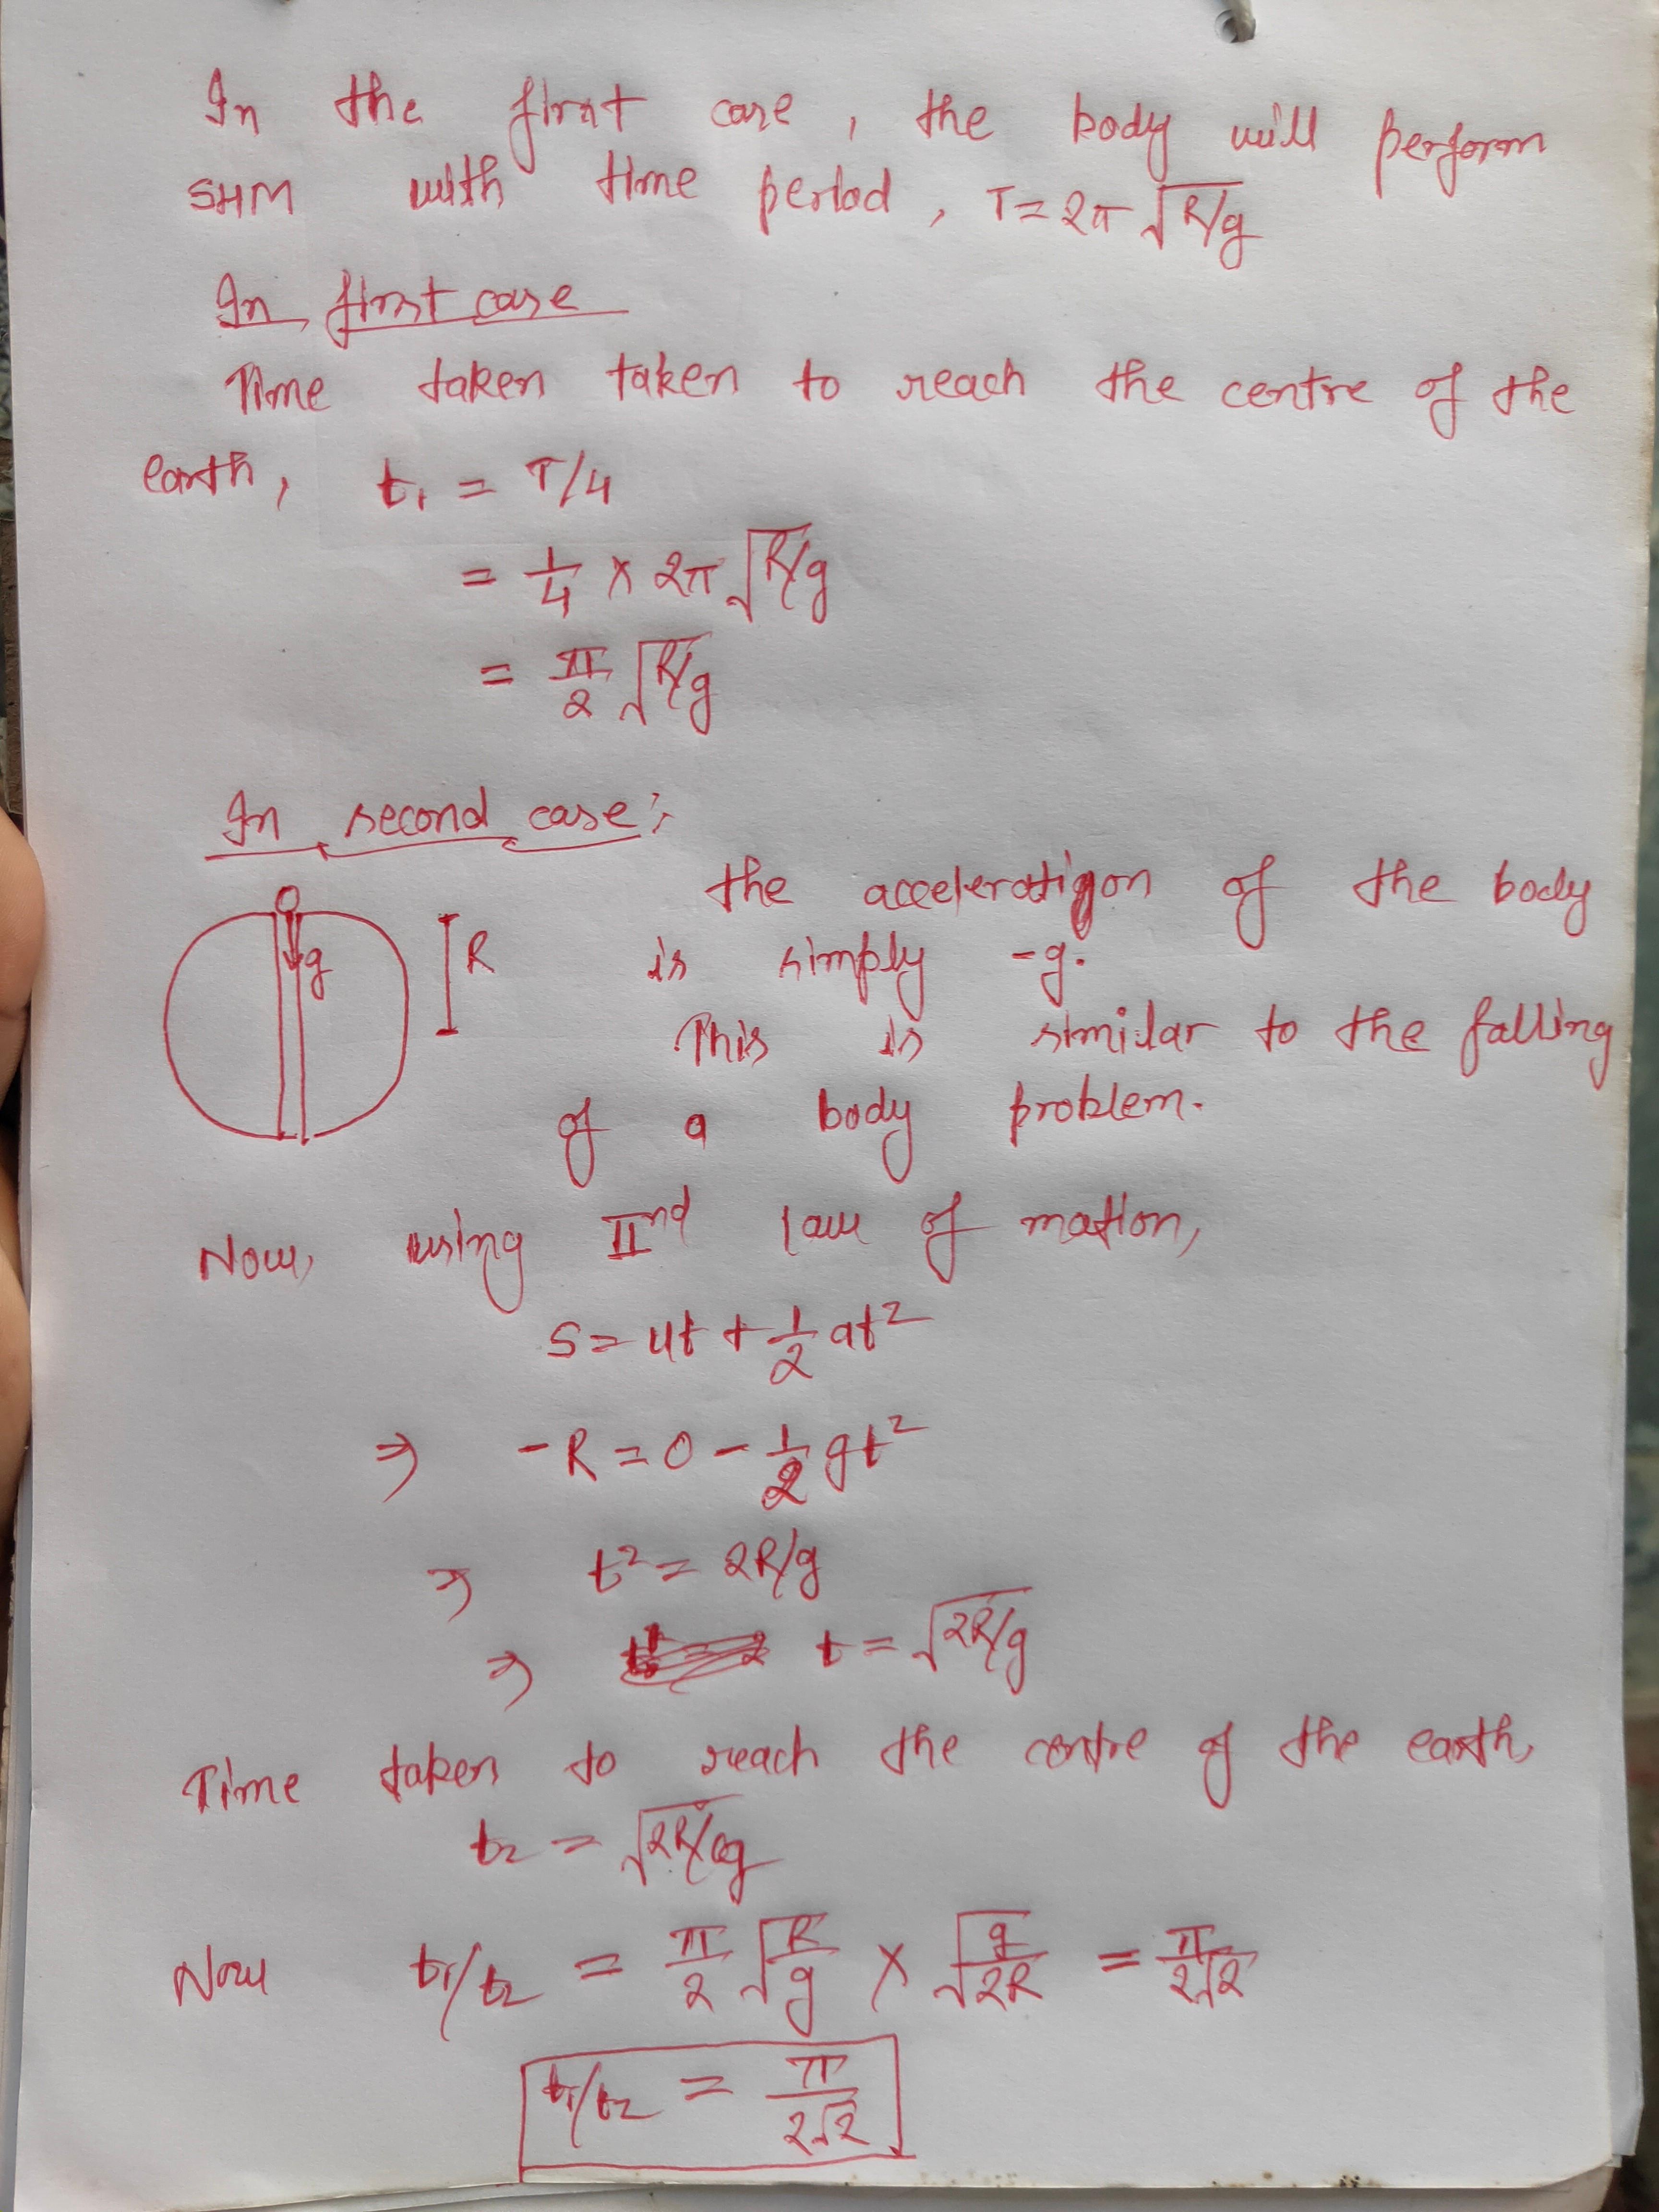 In the first case, the body will perform
SHM with time period, T = 2π √R/g
In first case
Time taken taken to reach the centre of the
earth, t₁ = T/4
= 1/4 × 2π √R/g
= π/2 √R/g
In second case:
the acceleration of the body
g
R
is simply -g.
This is similar to the falling
of a body problem.
Now, using IInd law of motion,
S = ut + 1/2 at²
⇒ -R = 0 - 1/2 gt²
⇒ t² = 2R/g
⇒ t = √2R/g
Time taken to reach the centre of the earth,
t₂ = √2R/g
Now t₁/t₂ = π/2 √R/g × √g/2R = π/2√2
t₁/t₂ = π/2√2